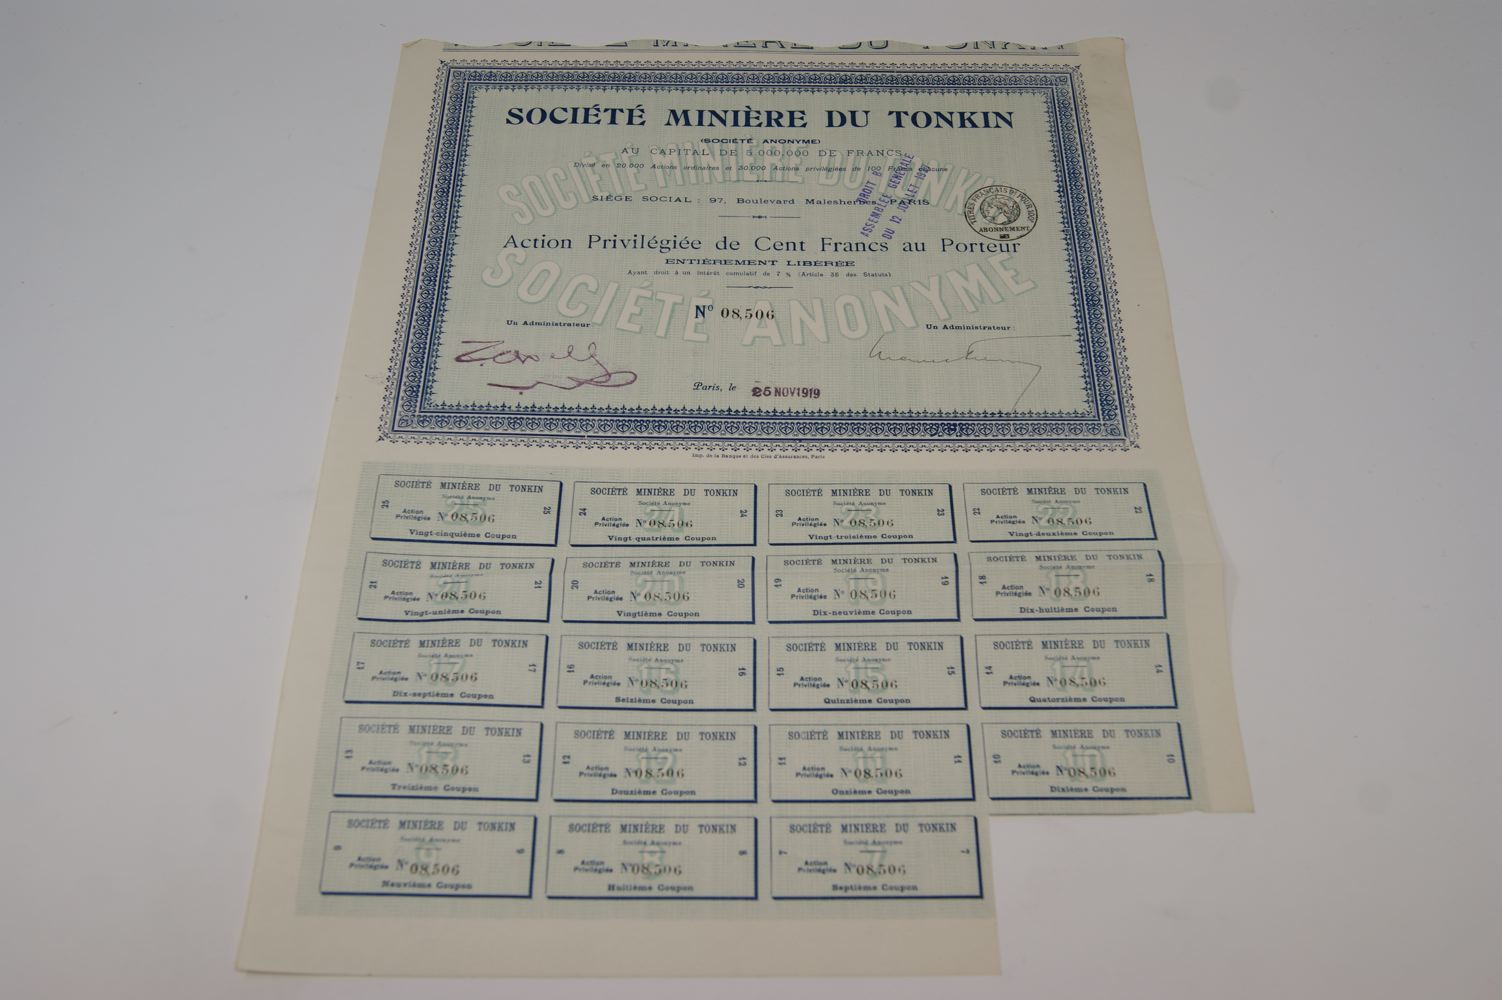 SOCIÉTÉ MINIÈRE DU TONKIN
SOCIÉTÉ MINIÈRE DU TONKIN
(SOCIÉTÉ ANONYME)
AU CAPITAL DE 5.000.000 DE FRANCS
Divisé en 20.000 Actions ordinaires et 30.000 Actions privilégiées de 100 Francs chacune
SOCIÉTÉ MINIÈRE DU TONKIN
SIÈGE SOCIAL : 97, Boulevard Malesherbes, PARIS
DROIT
ASSEMBLÉE GÉNÉRALE
DU 12 JUILLET
TITRES FRANÇAIS
ABONNEMENT
Action Privilégiée de Cent Francs au Porteur
ENTIÈREMENT LIBÉRÉE
Ayant droit à un intérêt cumulatif de 7 % (Article 36 des Statuts)
SOCIÉTÉ ANONYME
Nº 08,506
Un Administrateur
Un Administrateur :
Paris, le 25 NOV 1919
Imp. de la Banque et des Cies d'Assurances, Paris
SOCIÉTÉ MINIÈRE DU TONKIN
Société Anonyme
25 25 25
Action Privilégiée Nº 08,506
Vingt-cinquième Coupon
SOCIÉTÉ MINIÈRE DU TONKIN
Société Anonyme
24 24 24
Action Privilégiée Nº 08,506
Vingt-quatrième Coupon
SOCIÉTÉ MINIÈRE DU TONKIN
Société Anonyme
23 23 23
Action Privilégiée Nº 08,506
Vingt-troisième Coupon
SOCIÉTÉ MINIÈRE DU TONKIN
Société Anonyme
22 22 22
Action Privilégiée Nº 08,506
Vingt-deuxième Coupon
SOCIÉTÉ MINIÈRE DU TONKIN
Société Anonyme
21 21 21
Action Privilégiée Nº 08,506
Vingt-unième Coupon
SOCIÉTÉ MINIÈRE DU TONKIN
Société Anonyme
20 20 20
Action Privilégiée Nº 08,506
Vingtième Coupon
SOCIÉTÉ MINIÈRE DU TONKIN
Société Anonyme
19 19 19
Action Privilégiée Nº 08,506
Dix-neuvième Coupon
SOCIÉTÉ MINIÈRE DU TONKIN
Société Anonyme
18 18 18
Action Privilégiée Nº 08,506
Dix-huitième Coupon
SOCIÉTÉ MINIÈRE DU TONKIN
Société Anonyme
17 17 17
Action Privilégiée Nº 08,506
Dix-septième Coupon
SOCIÉTÉ MINIÈRE DU TONKIN
Société Anonyme
16 16 16
Action Privilégiée Nº 08,506
Seizième Coupon
SOCIÉTÉ MINIÈRE DU TONKIN
Société Anonyme
15 15 15
Action Privilégiée Nº 08,506
Quinzième Coupon
SOCIÉTÉ MINIÈRE DU TONKIN
Société Anonyme
14 14 14
Action Privilégiée Nº 08,506
Quatorzième Coupon
SOCIÉTÉ MINIÈRE DU TONKIN
Société Anonyme
13 13 13
Action Privilégiée Nº 08,506
Treizième Coupon
SOCIÉTÉ MINIÈRE DU TONKIN
Société Anonyme
12 12 12
Action Privilégiée Nº 08,506
Douzième Coupon
SOCIÉTÉ MINIÈRE DU TONKIN
Société Anonyme
11 11 11
Action Privilégiée Nº 08,506
Onzième Coupon
SOCIÉTÉ MINIÈRE DU TONKIN
Société Anonyme
10 10 10
Action Privilégiée Nº 08,506
Dixième Coupon
SOCIÉTÉ MINIÈRE DU TONKIN
Société Anonyme
9 9 9
Action Privilégiée Nº 08,506
Neuvième Coupon
SOCIÉTÉ MINIÈRE DU TONKIN
Société Anonyme
8 8 8
Action Privilégiée Nº 08,506
Huitième Coupon
SOCIÉTÉ MINIÈRE DU TONKIN
Société Anonyme
7 7 7
Action Privilégiée Nº 08,506
Septième Coupon